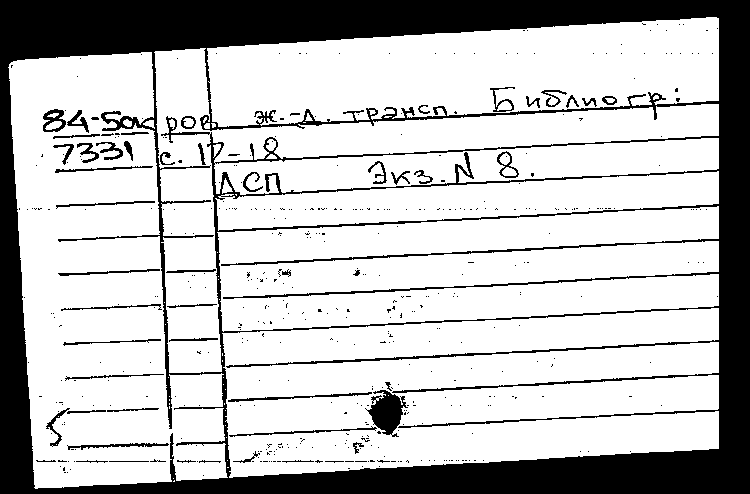 84-5ок ров ж.-д. трансп. Библиогр:
7331 с. 17-18.
ДСП. Экз. N 8.